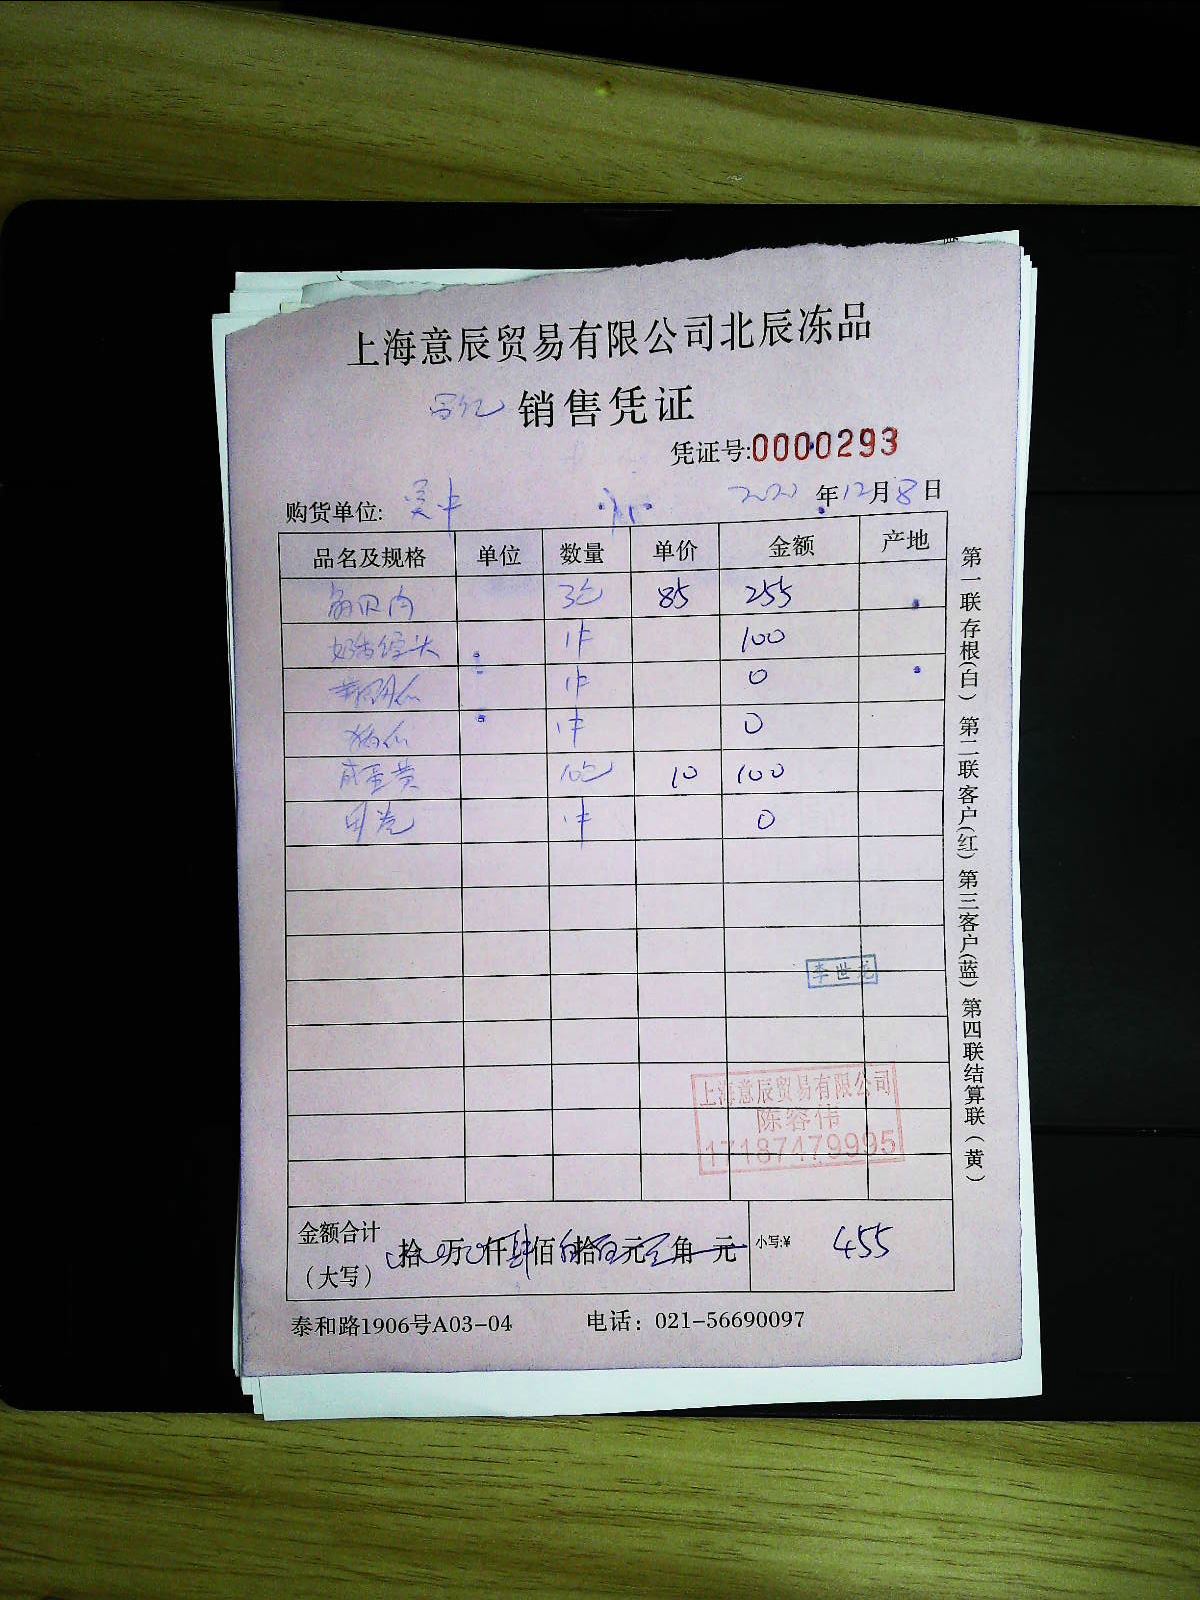 上海意辰贸易有限公司北辰冻品
销售凭证
凭证号:0000293
购货单位: 吴中 2020年12月8日
品名及规格 单位 数量 单价 金额 产地
扇贝肉 3包 85 255
奶香馒头 1件 100
1件 0
1件 0
咸蛋黄 10包 10 100
1件 0
李世龙
上海意辰贸易有限公司
陈容伟
17187479995
金额合计(大写) 拾 万 仟肆佰 拾 元 角 元 小写:¥ 455
泰和路1906号A03-04 电话：021-56690097
第一联存根(白) 第二联客户(红) 第三客户(蓝) 第四联结算联(黄)